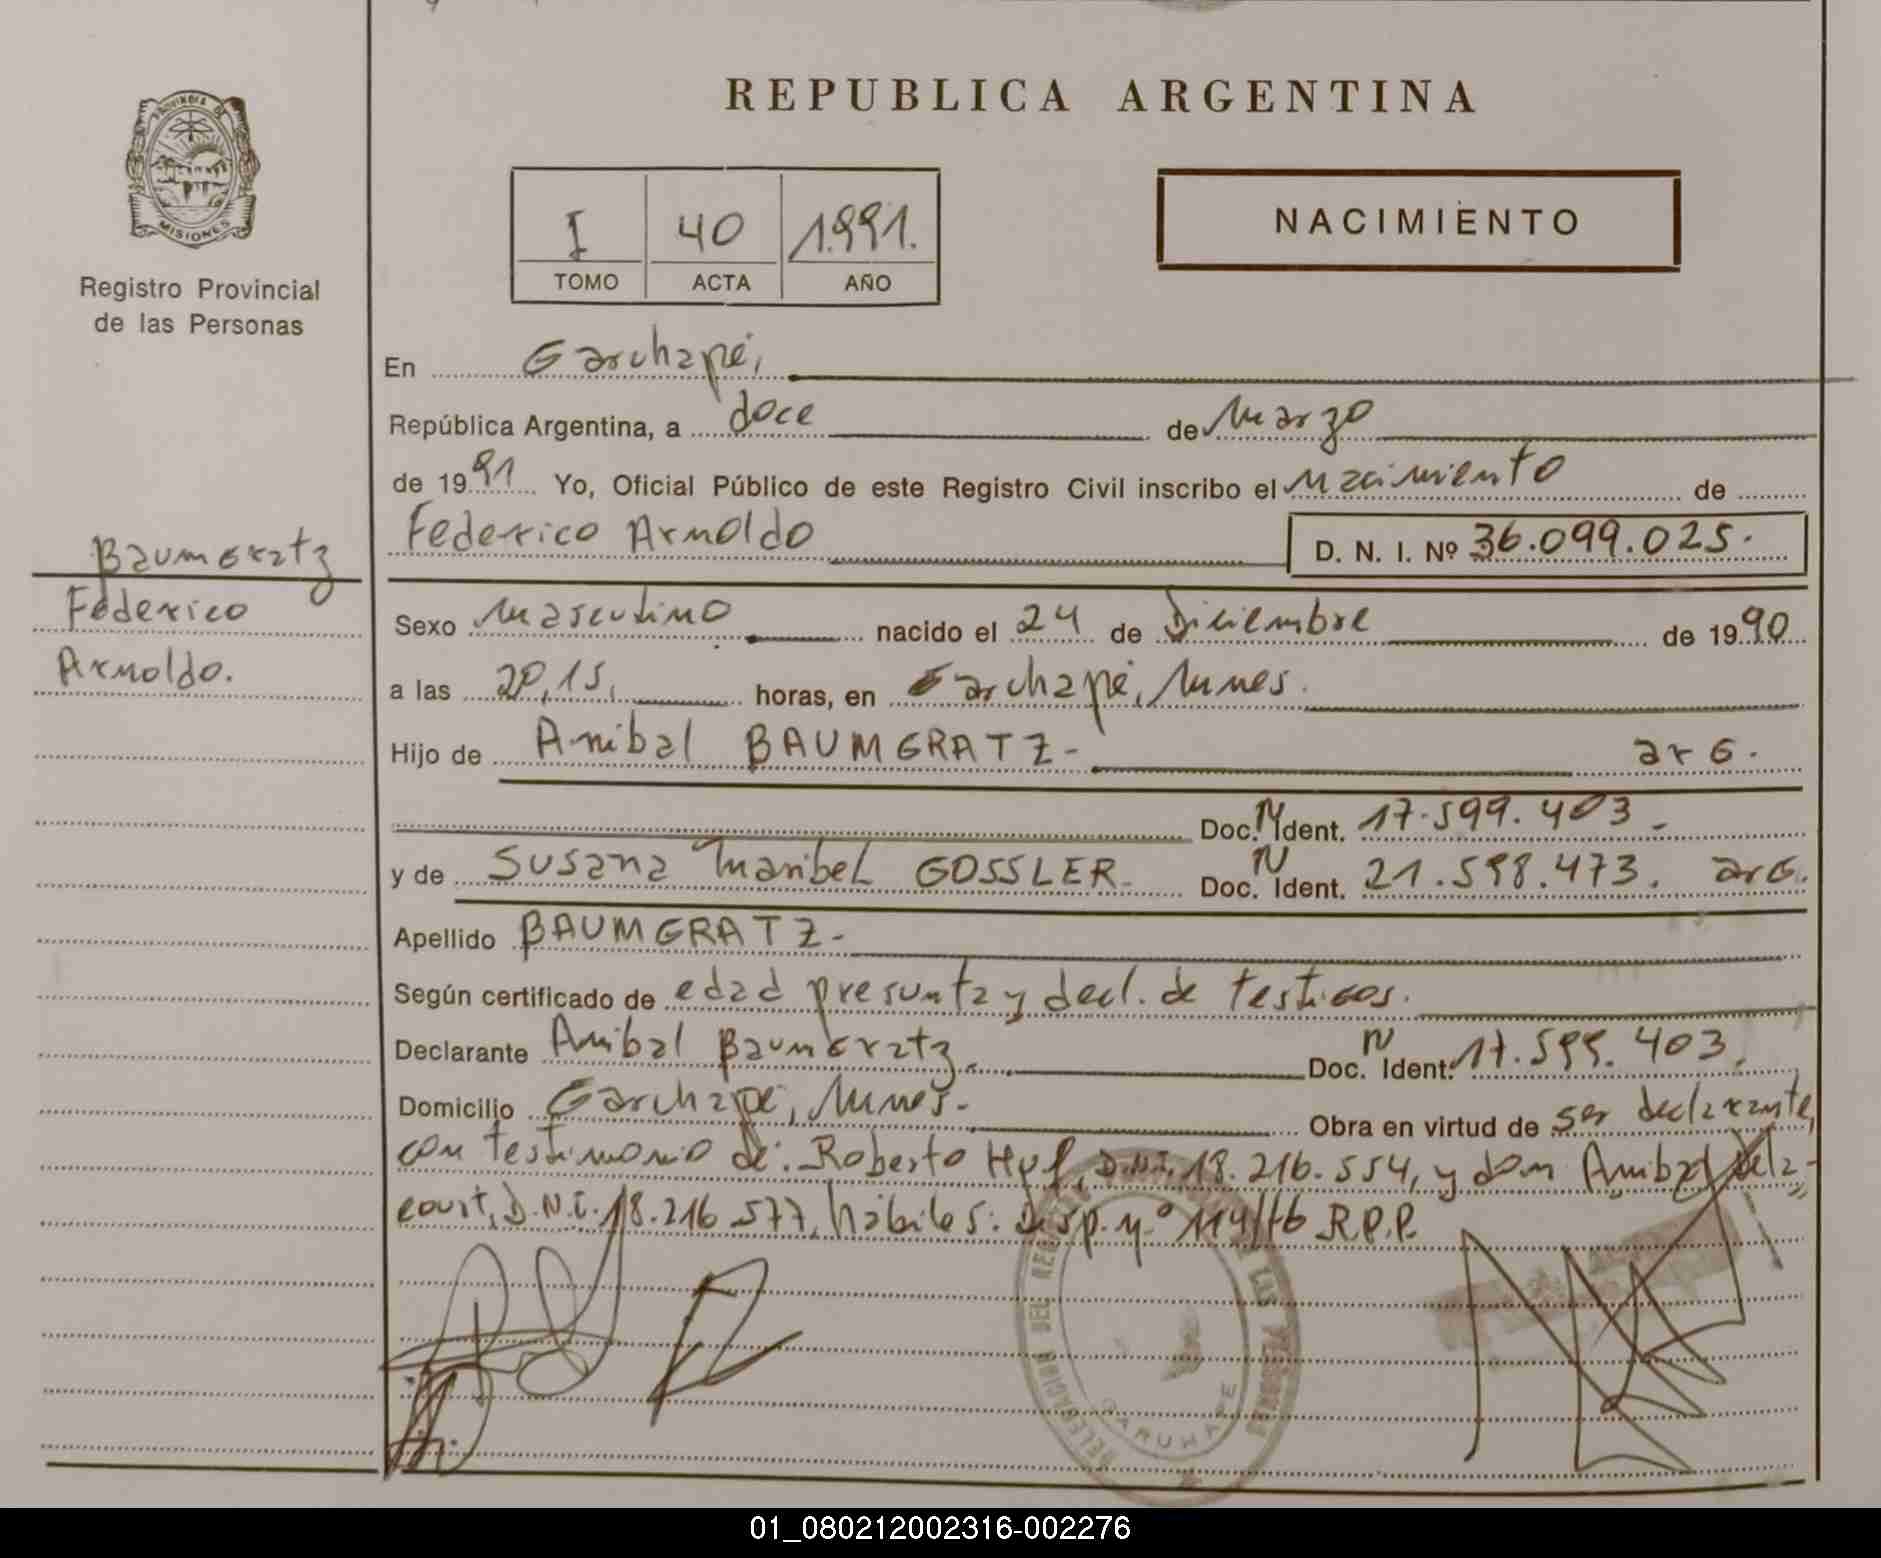 REPUBLICA ARGENTINA
PROVINCIA DE
MISIONES
Registro Provincial
de las Personas
I 40 1.991.
TOMO ACTA AÑO
NACIMIENTO
En Garuhapé,
República Argentina, a doce de Marzo
de 1991 Yo, Oficial Público de este Registro Civil inscribo el Nacimiento de
Federico Arnoldo D. N. I. Nº 36.099.025.
Baumgratz
Federico
Arnoldo.
Sexo Masculino nacido el 24 de Diciembre de 1990
a las 20,15, horas, en Garuhapé, Mnes.
Hijo de Anibal BAUMGRATZ- arg.
Doc. N Ident. 17.599.403.-
y de Susana Maribel GOSSLER- Doc. N Ident. 21.598.473. arg.
Apellido BAUMGRATZ-
Según certificado de edad presunta y decl. de testigos.
Declarante Anibal Baumgratz Doc. N Ident. 17.599.403.
Domicilio Garuhapé, Mnes.- Obra en virtud de ser declarante,
con testimonio de: Roberto D.N.I. 18.216.554, y don Anibal Dela-
court, D.N.I. 18.216.577, hábiles. Disp. Nº 114/76 R.P.P.
DELEGACION DEL REGISTRO DE LAS PERSONAS
GARUHAPE
01_080212002316-002276